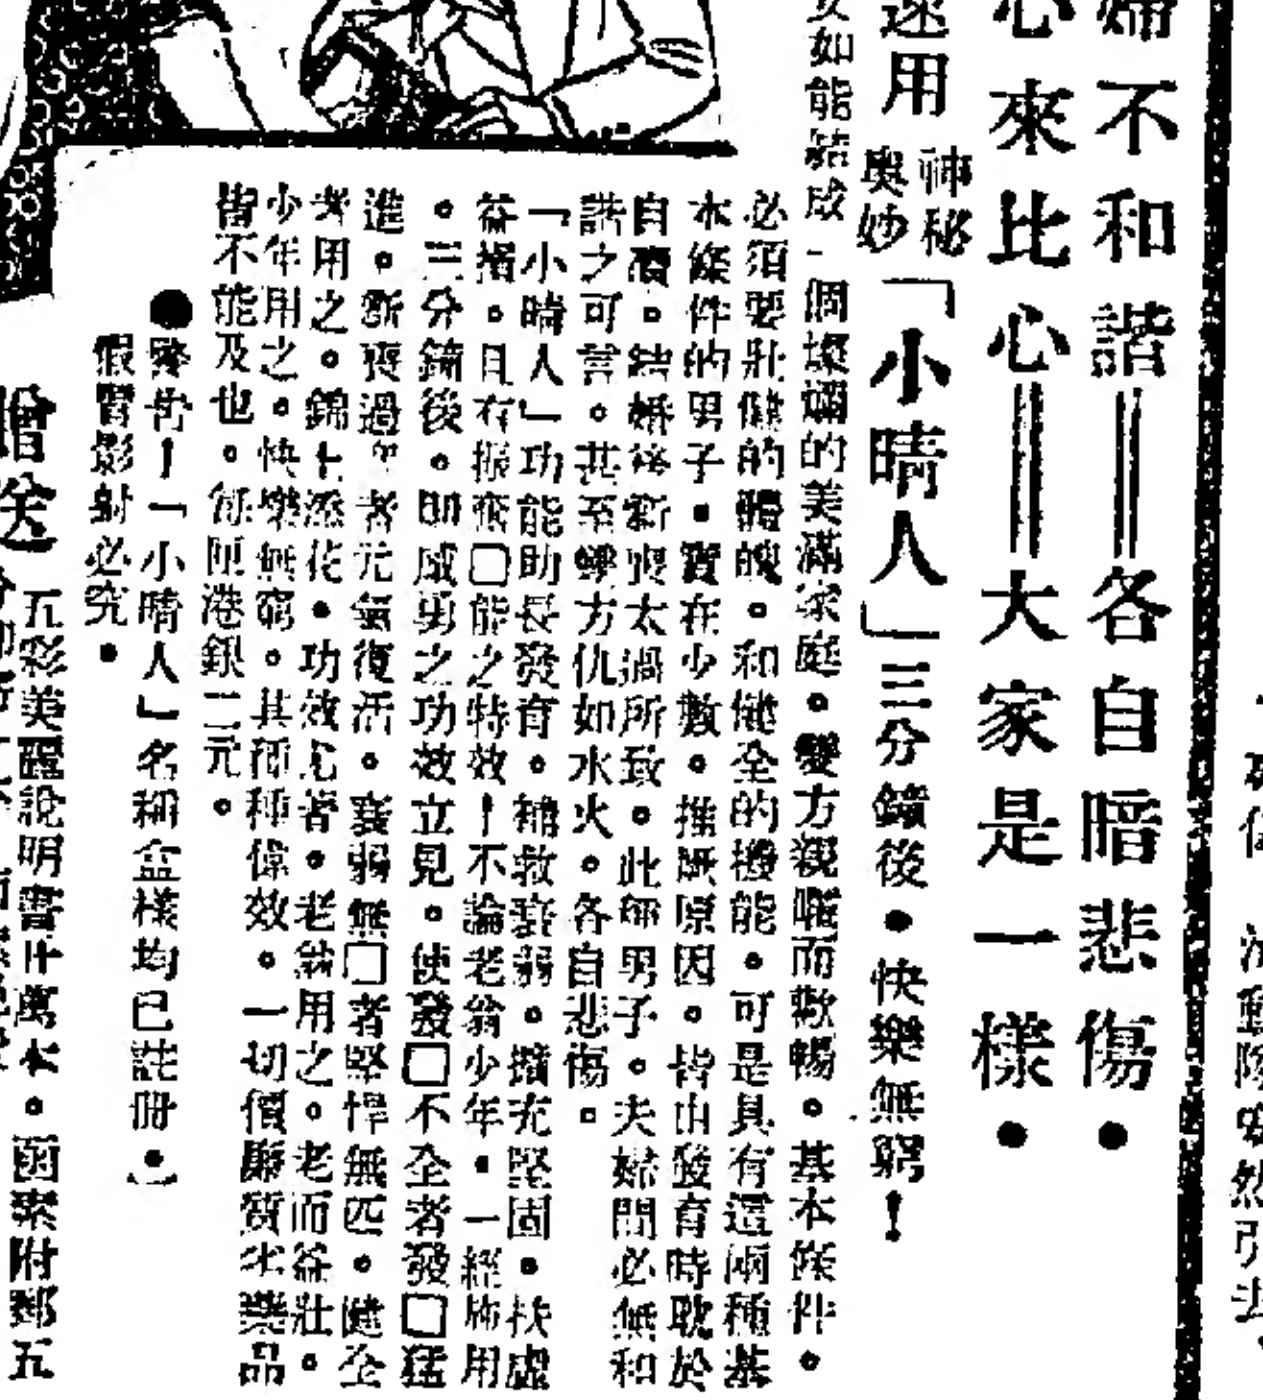 婦不和諧＝各自暗悲傷•
心來比心＝大家是一樣•
速用 神秘奧妙 「小晴人」三分鐘後•快樂無窮！
女如能結成一個燦爛的美滿家庭。雙方親暱而歡暢。基本條件。
必須要壯健的體魄。和健全的機能。可是具有這兩種基
本條件的男子。實在少數。推厥原因。皆由發育時耽於
自瀆。結婚後斲喪太過所致。此種男子。夫婦間必無和
諧之可言。甚至雙方仇如水火。各自悲傷。
「小晴人」功能助長發育。補救衰弱。擴充堅固。扶虛
益損。且有振奮□能之特效！不論老翁少年。一經施用
。三分鐘後。即感男之功效立見。使發□不全者發□猛
進。斲喪過早者元氣復活。衰弱無□者堅悍無匹。健全
者用之。錦上添花。功效尤著。老翁用之。老而益壯。
少年用之。快樂無窮。其種種偉效。一切價廉質劣藥品
皆不能及也。每匣港銀二元。
●警告！「小晴人」名稱盒樣均已註冊•
假冒影射必究•
贈送 五彩美麗說明書廿萬本。函索附郵五